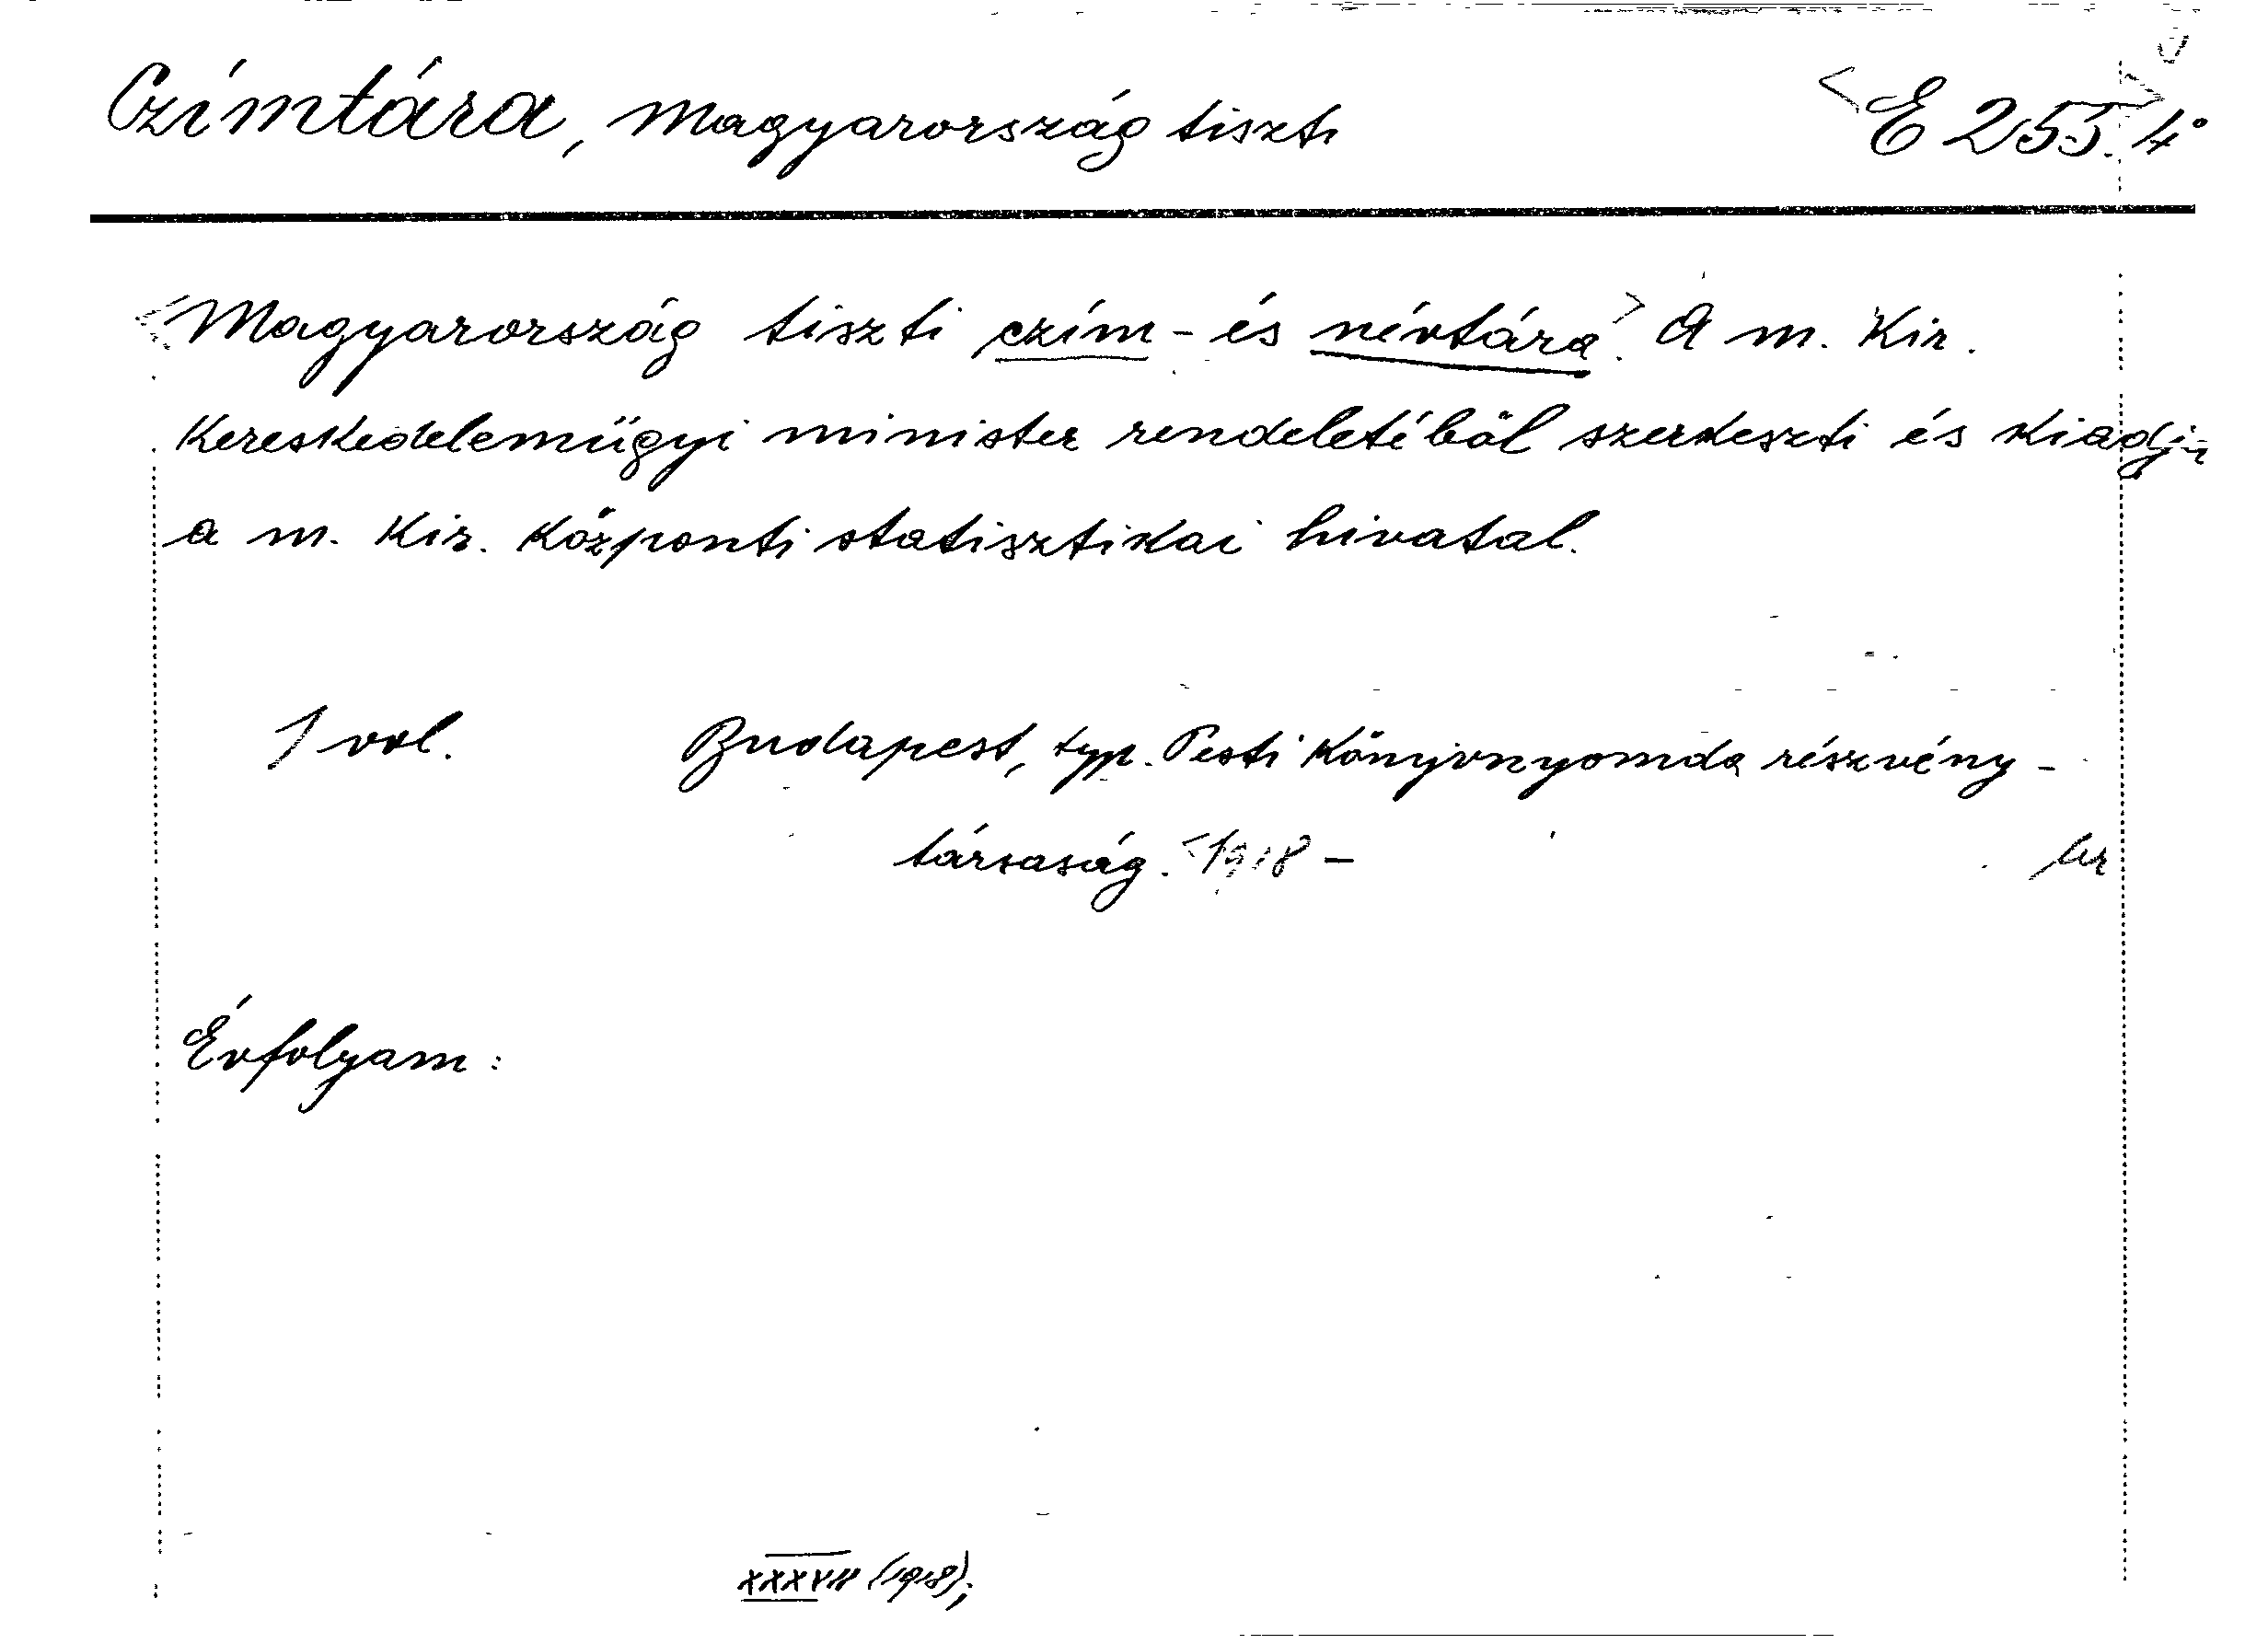 Czímtára, Magyarország tiszti <E 255. 4°>
<Magyarország tiszti czím- és névtára>. A m. Kir.
Kereskedelemügyi minister rendeletéből szerkeszti és kiadja
a m. Kir. Központi statisztikai hivatal.
1 vol. Budapest, typ. Pesti Könyvnyomda részvény-
társaság. <1918 -
Évfolyam:
XXXVII (1918);